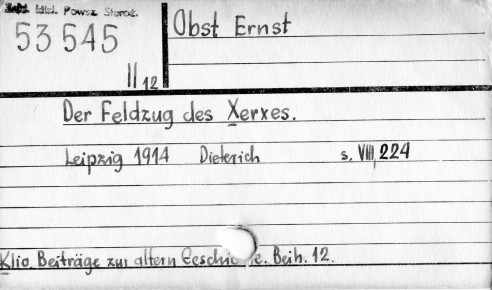 Zakł. Hist. Powsz. Staroż.
53 545
II 12
Obst Ernst
Der Feldzug des Xerxes.
Leipzig 1914 Dieterich s. VIII, 224
Klio. Beiträge zur altern Beih. 12.